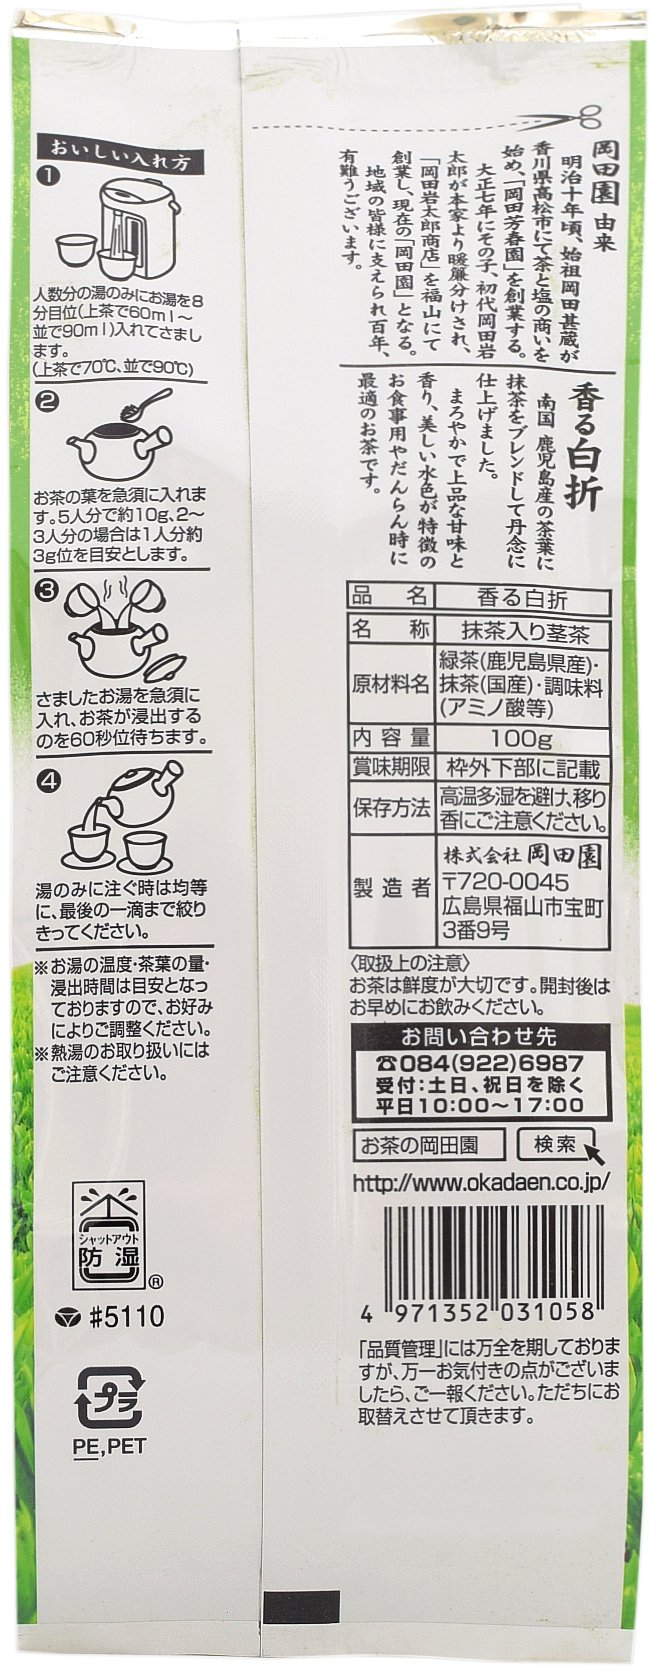 岡田園 由来
明治十年頃、始祖岡田甚蔵が
香川県高松市にて茶と塩の商いを
始め、「岡田芳春園」を創業する。
大正七年にその子、初代岡田岩
太郎が本家より暖簾分けされ、
「岡田岩太郎商店」を福山にて
創業し、現在の「岡田園」となる。
地域の皆様に支えられ百年、
有難うございます。
香る白折
南国 鹿児島産の茶葉に
抹茶をブレンドして丹念に
仕上げました。
まろやかで上品な甘味と
香り、美しい水色が特徴の
お食事用やだんらん時に
最適のお茶です。
品名 香る白折
名称 抹茶入り茎茶
原材料名 緑茶(鹿児島県産)・
抹茶(国産)・調味料
(アミノ酸等)
内容量 100g
賞味期限 枠外下部に記載
保存方法 高温多湿を避け、移り
香にご注意ください。
製造者 株式会社 岡田園
〒720-0045
広島県福山市宝町
3番9号
〈取扱上の注意〉
お茶は鮮度が大切です。開封後は
お早めにお飲みください。
お問い合わせ先
☎084(922)6987
受付：土日、祝日を除く
平日10:00〜17:00
お茶の岡田園 検索
http://www.okadaen.co.jp/
4 971352 031058
「品質管理」には万全を期しておりま
すが、万一お気付きの点がございま
したら、ご一報ください。ただちにお
取替えさせて頂きます。
おいしい入れ方
❶
人数分の湯のみにお湯を8
分目位(上茶で60ml〜
並で90ml)入れてさまし
ます。
(上茶で70℃、並で90℃)
❷
お茶の葉を急須に入れま
す。5人分で約10g、2〜
3人分の場合は1人分約
3g位を目安とします。
❸
さましたお湯を急須に
入れ、お茶が浸出する
のを60秒位待ちます。
❹
湯のみに注ぐ時は均等
に、最後の一滴まで絞り
きってください。
※お湯の温度・茶葉の量・
浸出時間は目安となっ
ておりますので、お好み
によりご調整ください。
※熱湯のお取り扱いには
ご注意ください。
シャットアウト
防湿
®
#5110
プラ
PE,PET